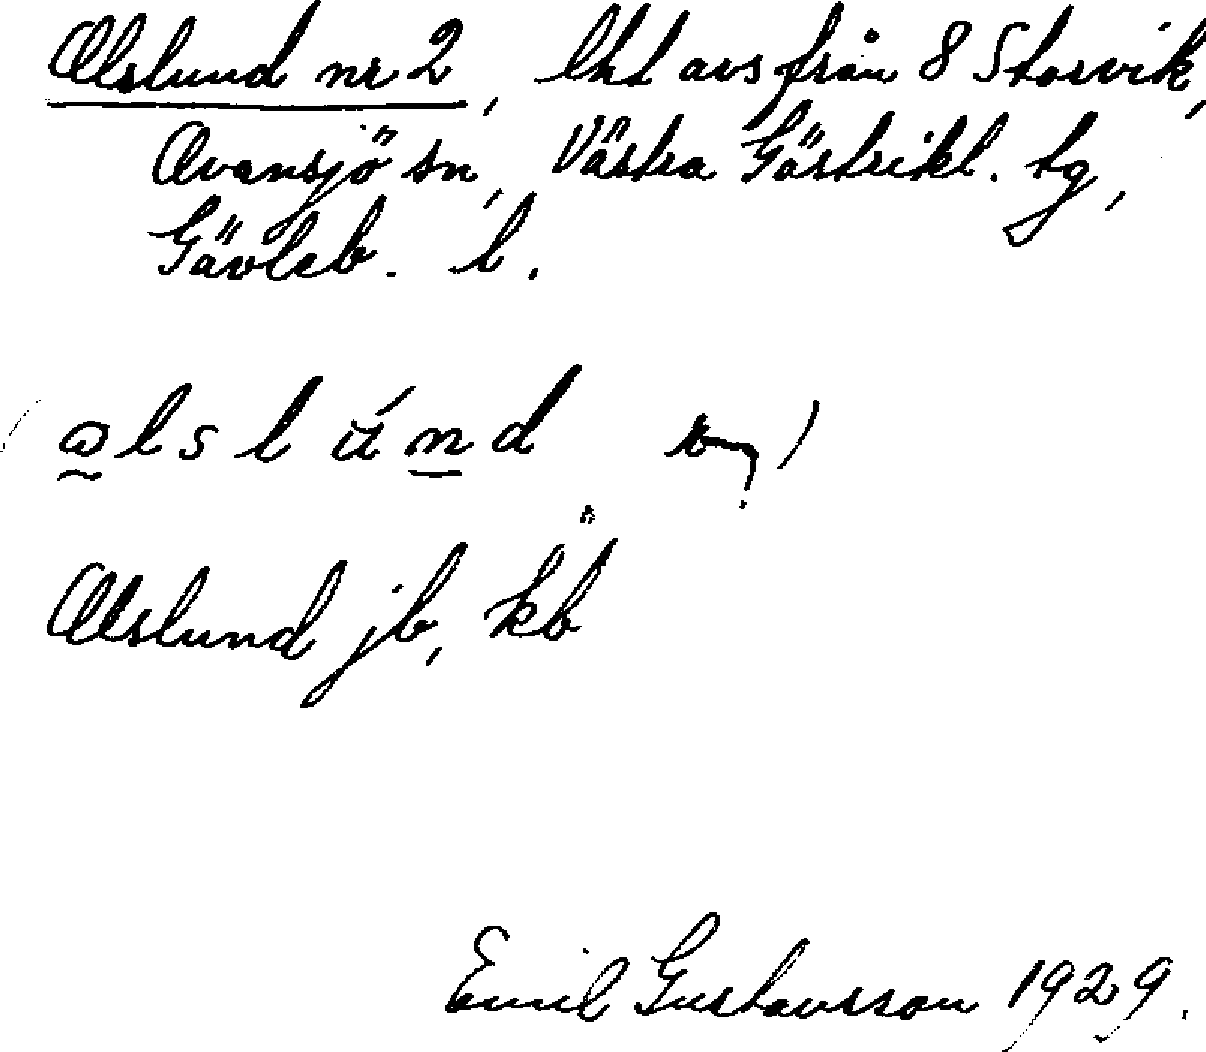 Alslund nr 2, lht avs från 8 Storvik,
Ovansjö sn, Västra Gästrikl. tg,
Gävleb. l.
alslúnd
Alslund jb, kb
Emil Gustavsson 1929.